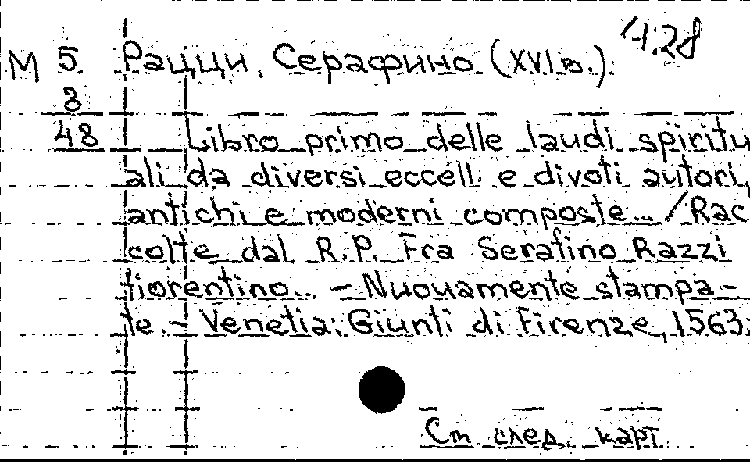 4.28
М 5 Рацци, Серафино (XVI в.)
8
48 Libro primo delle laudi spiritu
ali da diversi eccell. e divoti autori,
antichi e moderni composte... / Rac
colte dal R.P. Fra Serafino Razzi
fiorentino... - Nuovamente stampa-
te. - Venetia: Giunti di Firenze, 1563.
См след. карт